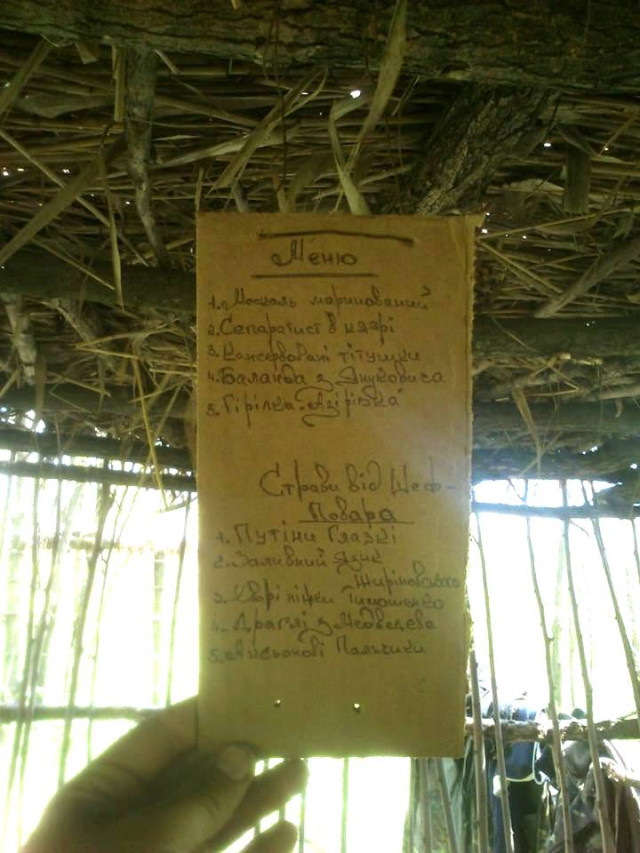 Меню
1. Москаль маринований
2. Сепаратист в клярі
3. Консервовані тітушки
4. Баланда з Януковича
5. Гірілка "Азірівка"
Страви від Шеф-
Повара
1. Путіни Глазкі
2. Заливний Язик
Жириновського
3. Хворі ніжки Тимошенко
4. Драглі з Медведєва
5. Пальчики